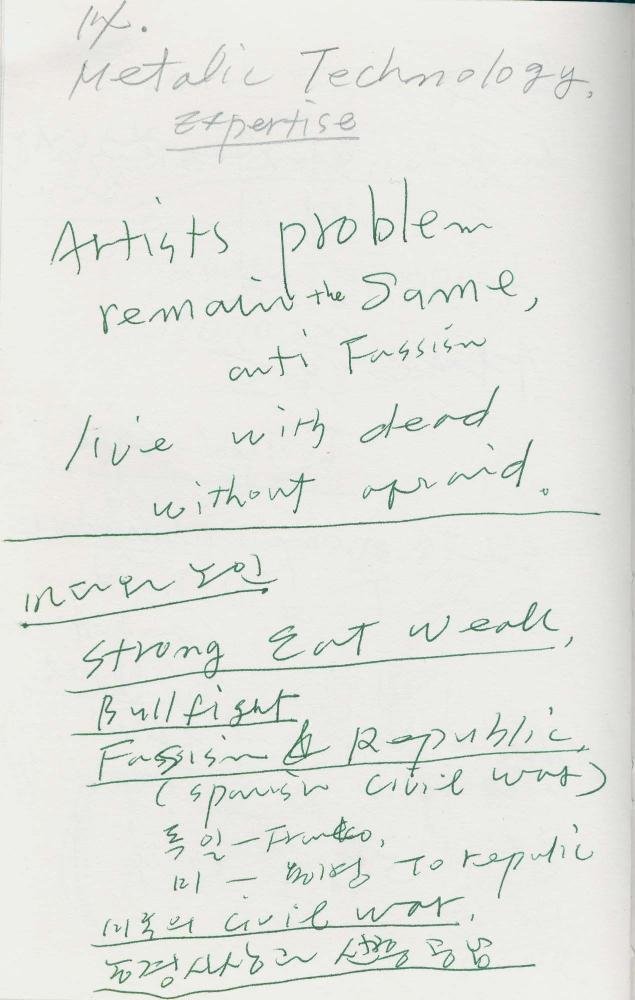 14.
Metalic Technology,
Expertise
Artists problem
remain the Same,
anti Fassism
live with dead
without apraid.
바다와 노인
Strong Eat Weak,
Bullfight
Fassism & Republic,
(spanish civil war)
독일 – Franco,
미 – To repulic
미국의 civil war,